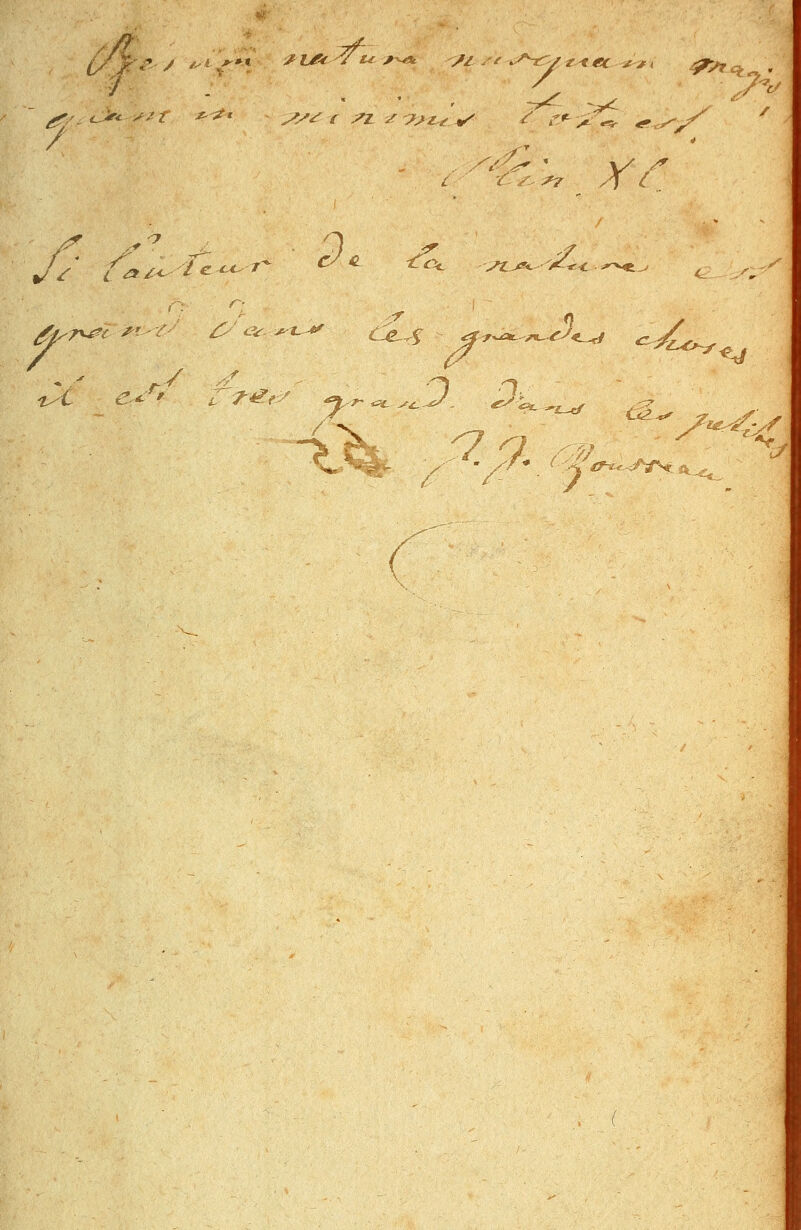 Rerum natura nusquam magis
quam in minimis tota est
Plin XI.
Si l'auteur de la nature est
grand dans les grandes choses
il est tres grand dans les petites
J. J. Rousseau.